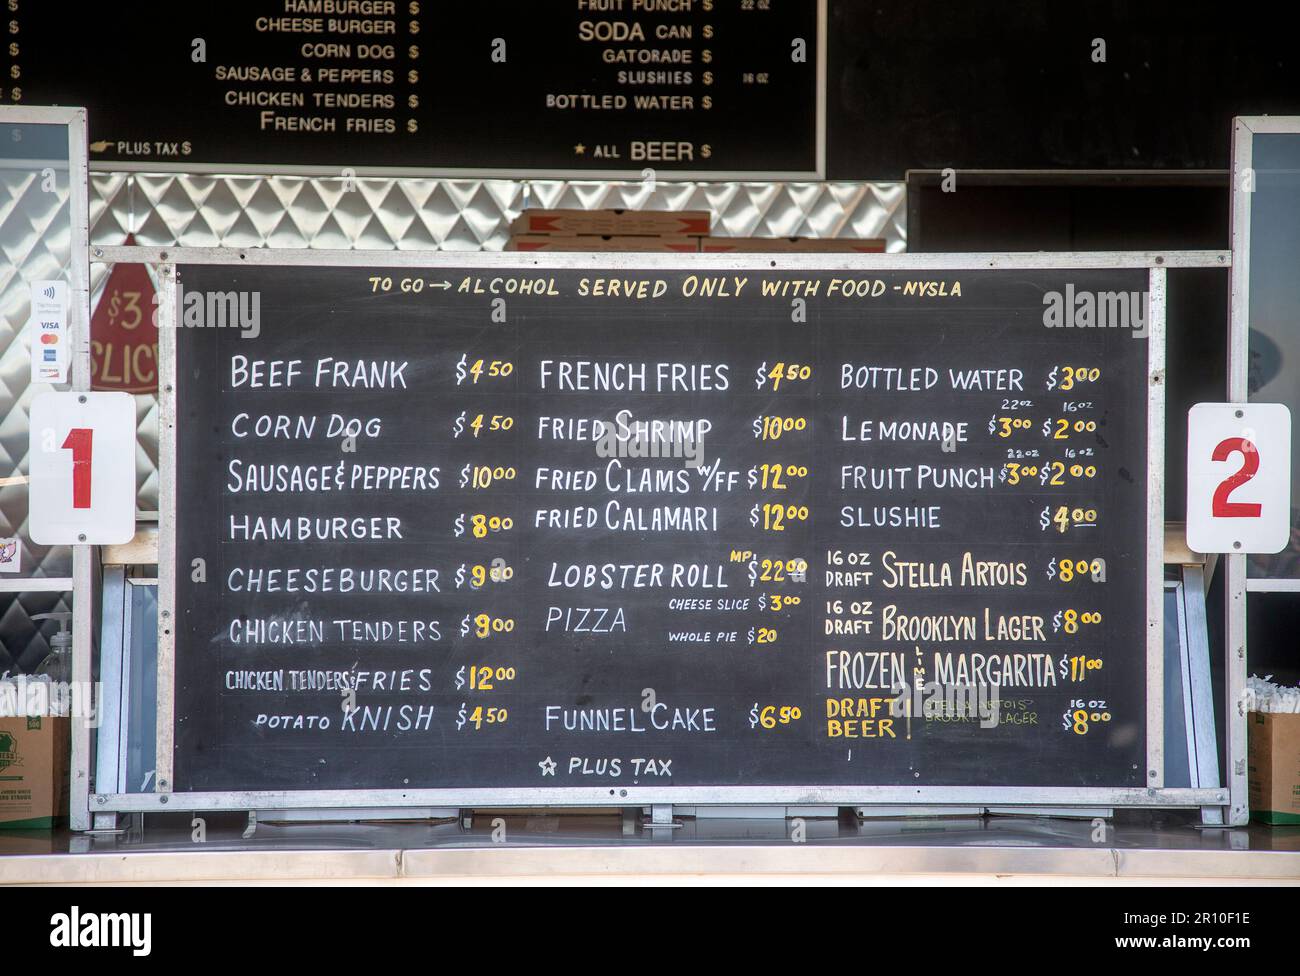 HAMBURGER $
CHEESE BURGER $
CORN DOG $
SAUSAGE & PEPPERS $
CHICKEN TENDERS $
FRENCH FRIES $
PLUS TAX $
FRUIT PUNCH $ 22 OZ
SODA CAN $
GATORADE $
SLUSHIES $ 16 OZ
BOTTLED WATER $
★ ALL BEER $
$3
SLICE
VISA
1
2
TO GO → ALCOHOL SERVED ONLY WITH FOOD - NYSLA
BEEF FRANK $4.50
CORN DOG $4.50
SAUSAGE & PEPPERS $10.00
HAMBURGER $8.00
CHEESEBURGER $9.00
CHICKEN TENDERS $9.00
CHICKEN TENDERS & FRIES $12.00
POTATO KNISH $4.50
FRENCH FRIES $4.50
FRIED SHRIMP $10.00
FRIED CLAMS W/FF $12.00
FRIED CALAMARI $12.00
LOBSTER ROLL MP $22.00
PIZZA CHEESE SLICE $3.00
WHOLE PIE $20
FUNNEL CAKE $6.50
☆ PLUS TAX
BOTTLED WATER $3.00
22 OZ 16 OZ
LEMONADE $3.00 $2.00
22 OZ 16 OZ
FRUIT PUNCH $3.00 $2.00
SLUSHIE $4.00
16 OZ DRAFT STELLA ARTOIS $8.00
16 OZ DRAFT BROOKLYN LAGER $8.00
FROZEN LIME MARGARITA $11.00
DRAFT BEER STELLA ARTOIS BROOKLYN LAGER 16 OZ $8.00
alamy
Image ID: 2R10F1E
www.alamy.com